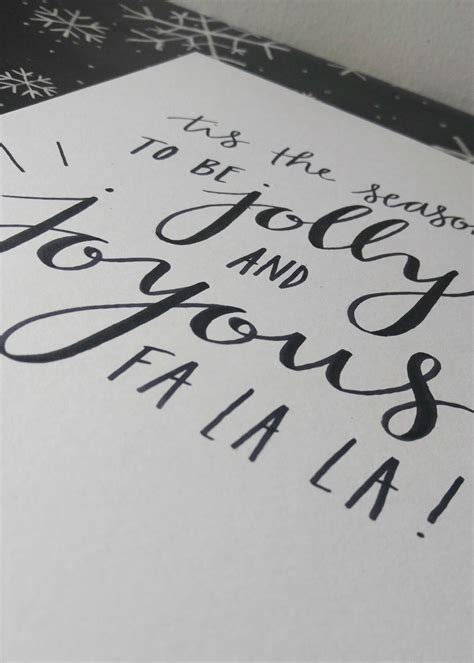 tis the season
TO BE
jolly
AND
joyous
FA LA LA!